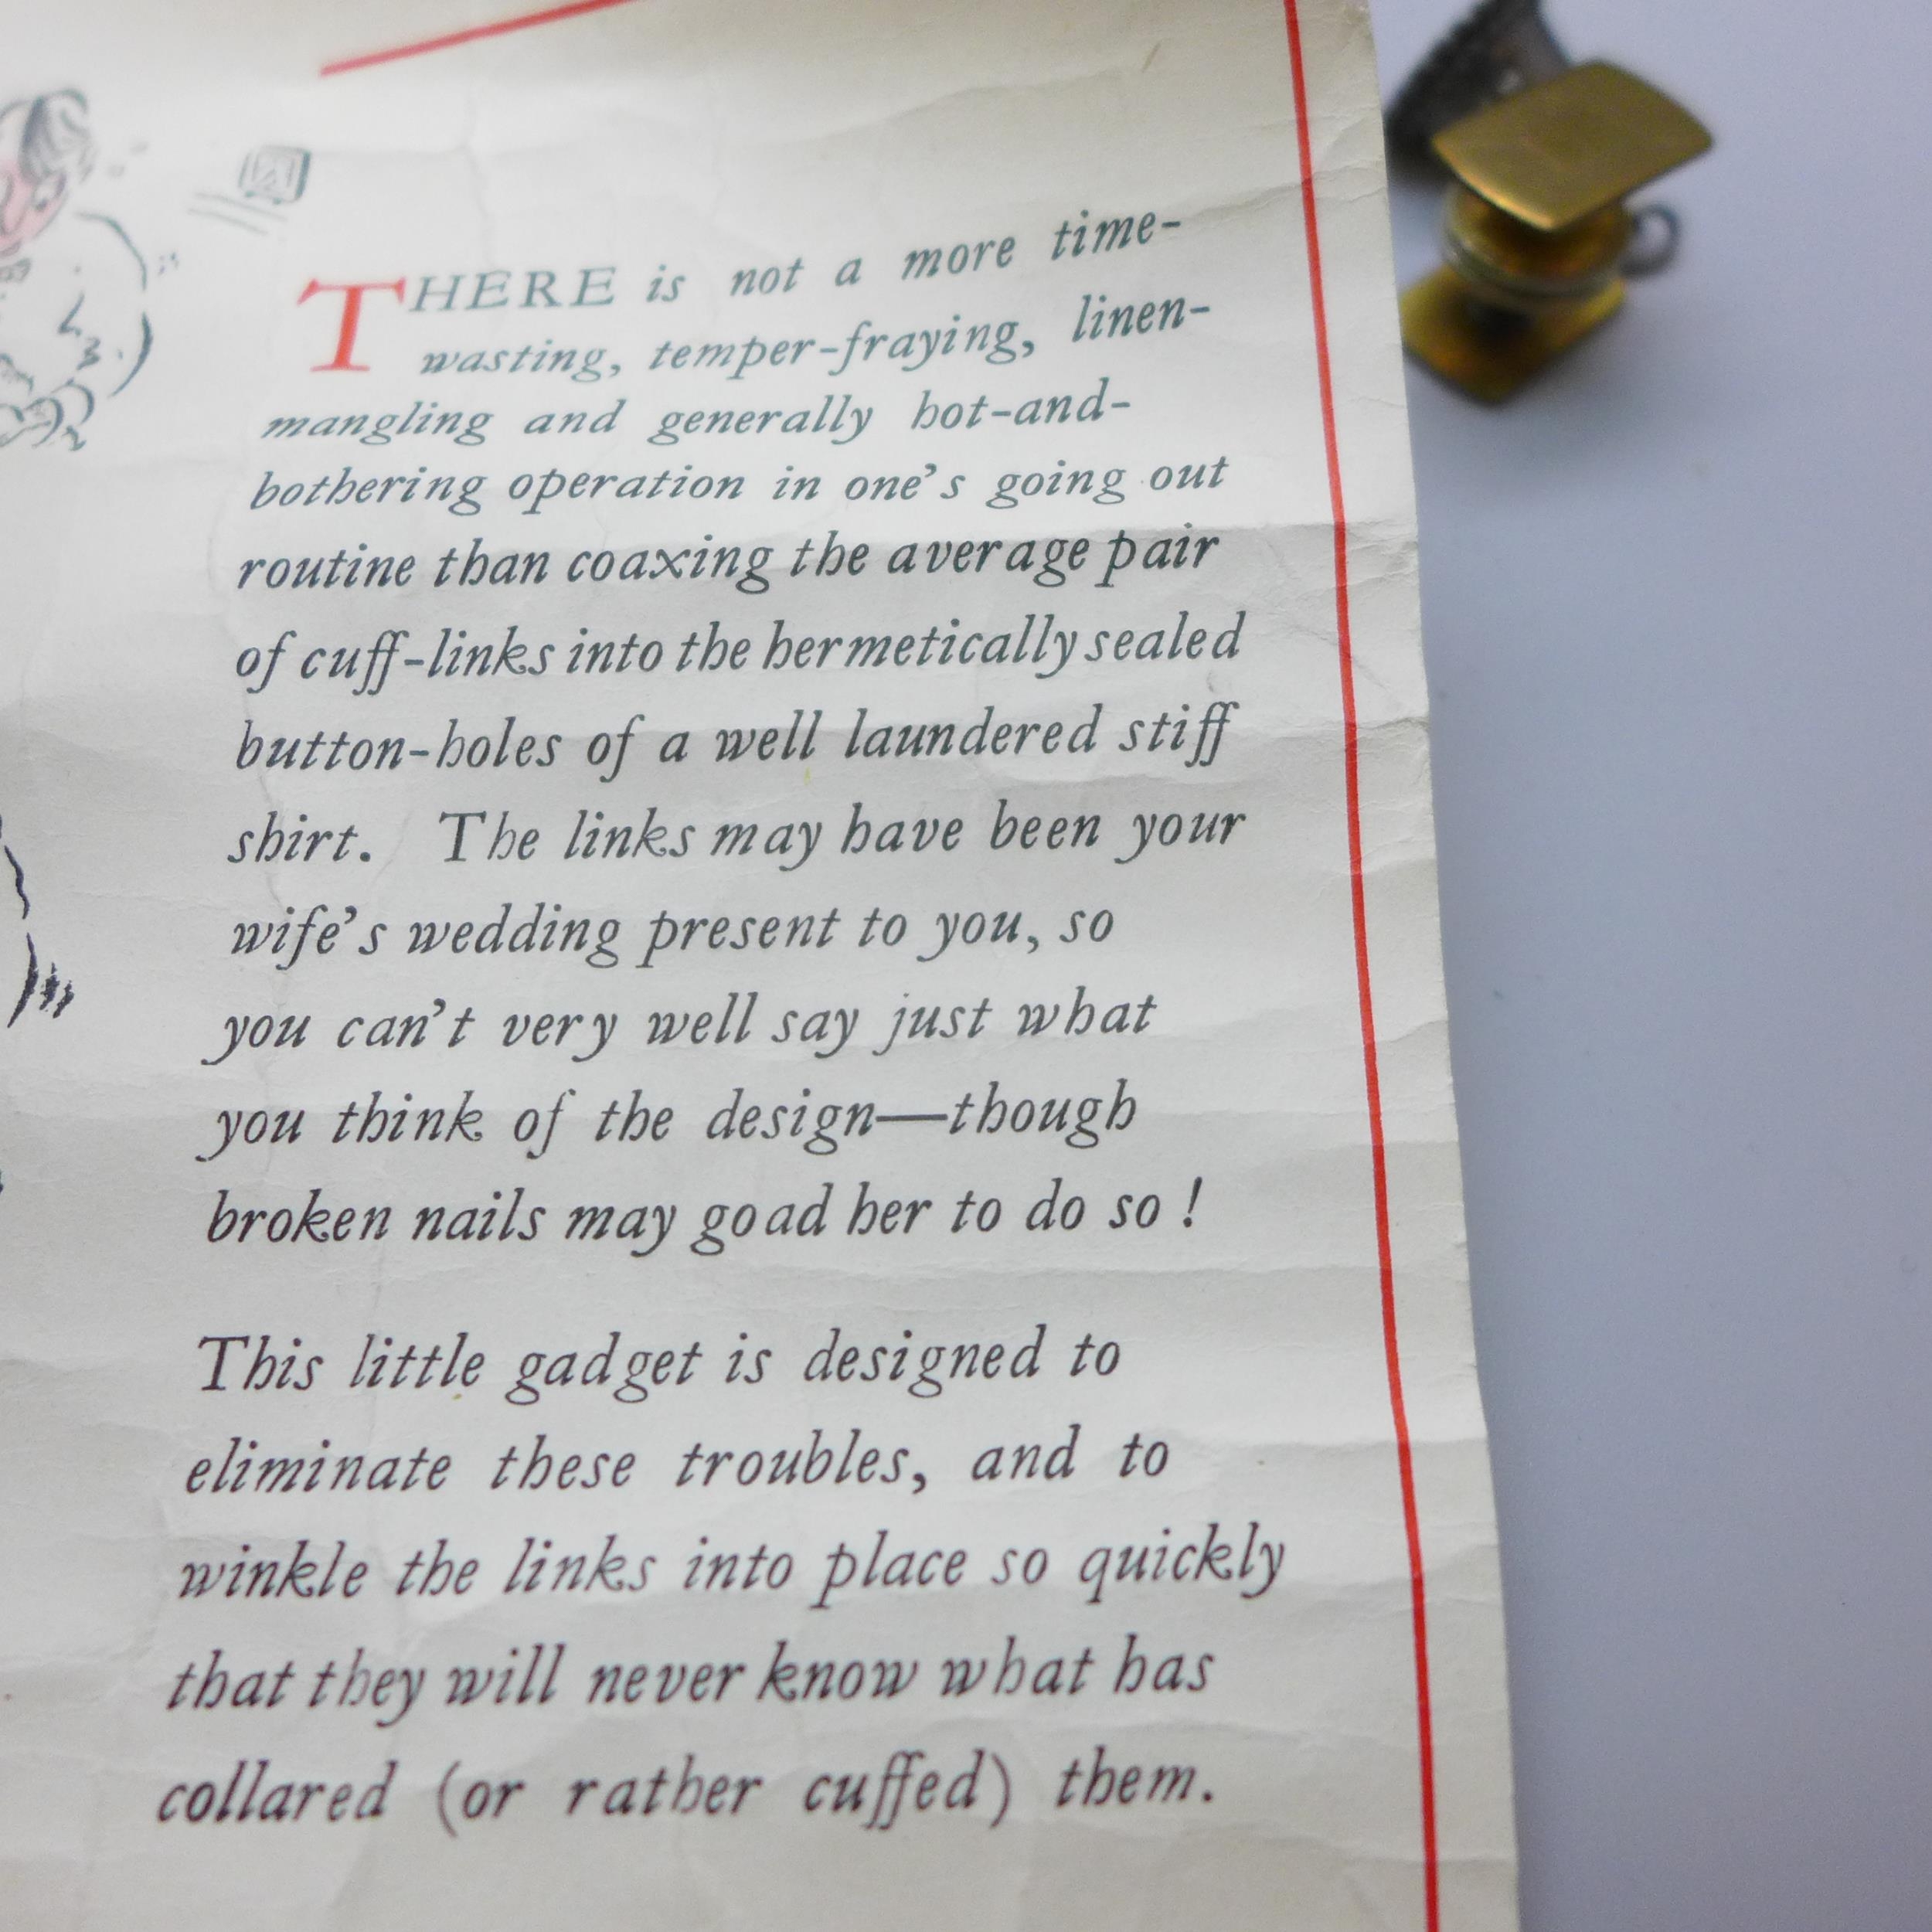 THERE is not a more time-
wasting, temper-fraying, linen-
mangling and generally hot-and-
bothering operation in one's going out
routine than coaxing the average pair
of cuff-links into the hermetically sealed
button-holes of a well laundered stiff
shirt. The links may have been your
wife's wedding present to you, so
you can't very well say just what
you think of the design—though
broken nails may goad her to do so !
This little gadget is designed to
eliminate these troubles, and to
winkle the links into place so quickly
that they will never know what has
collared (or rather cuffed) them.